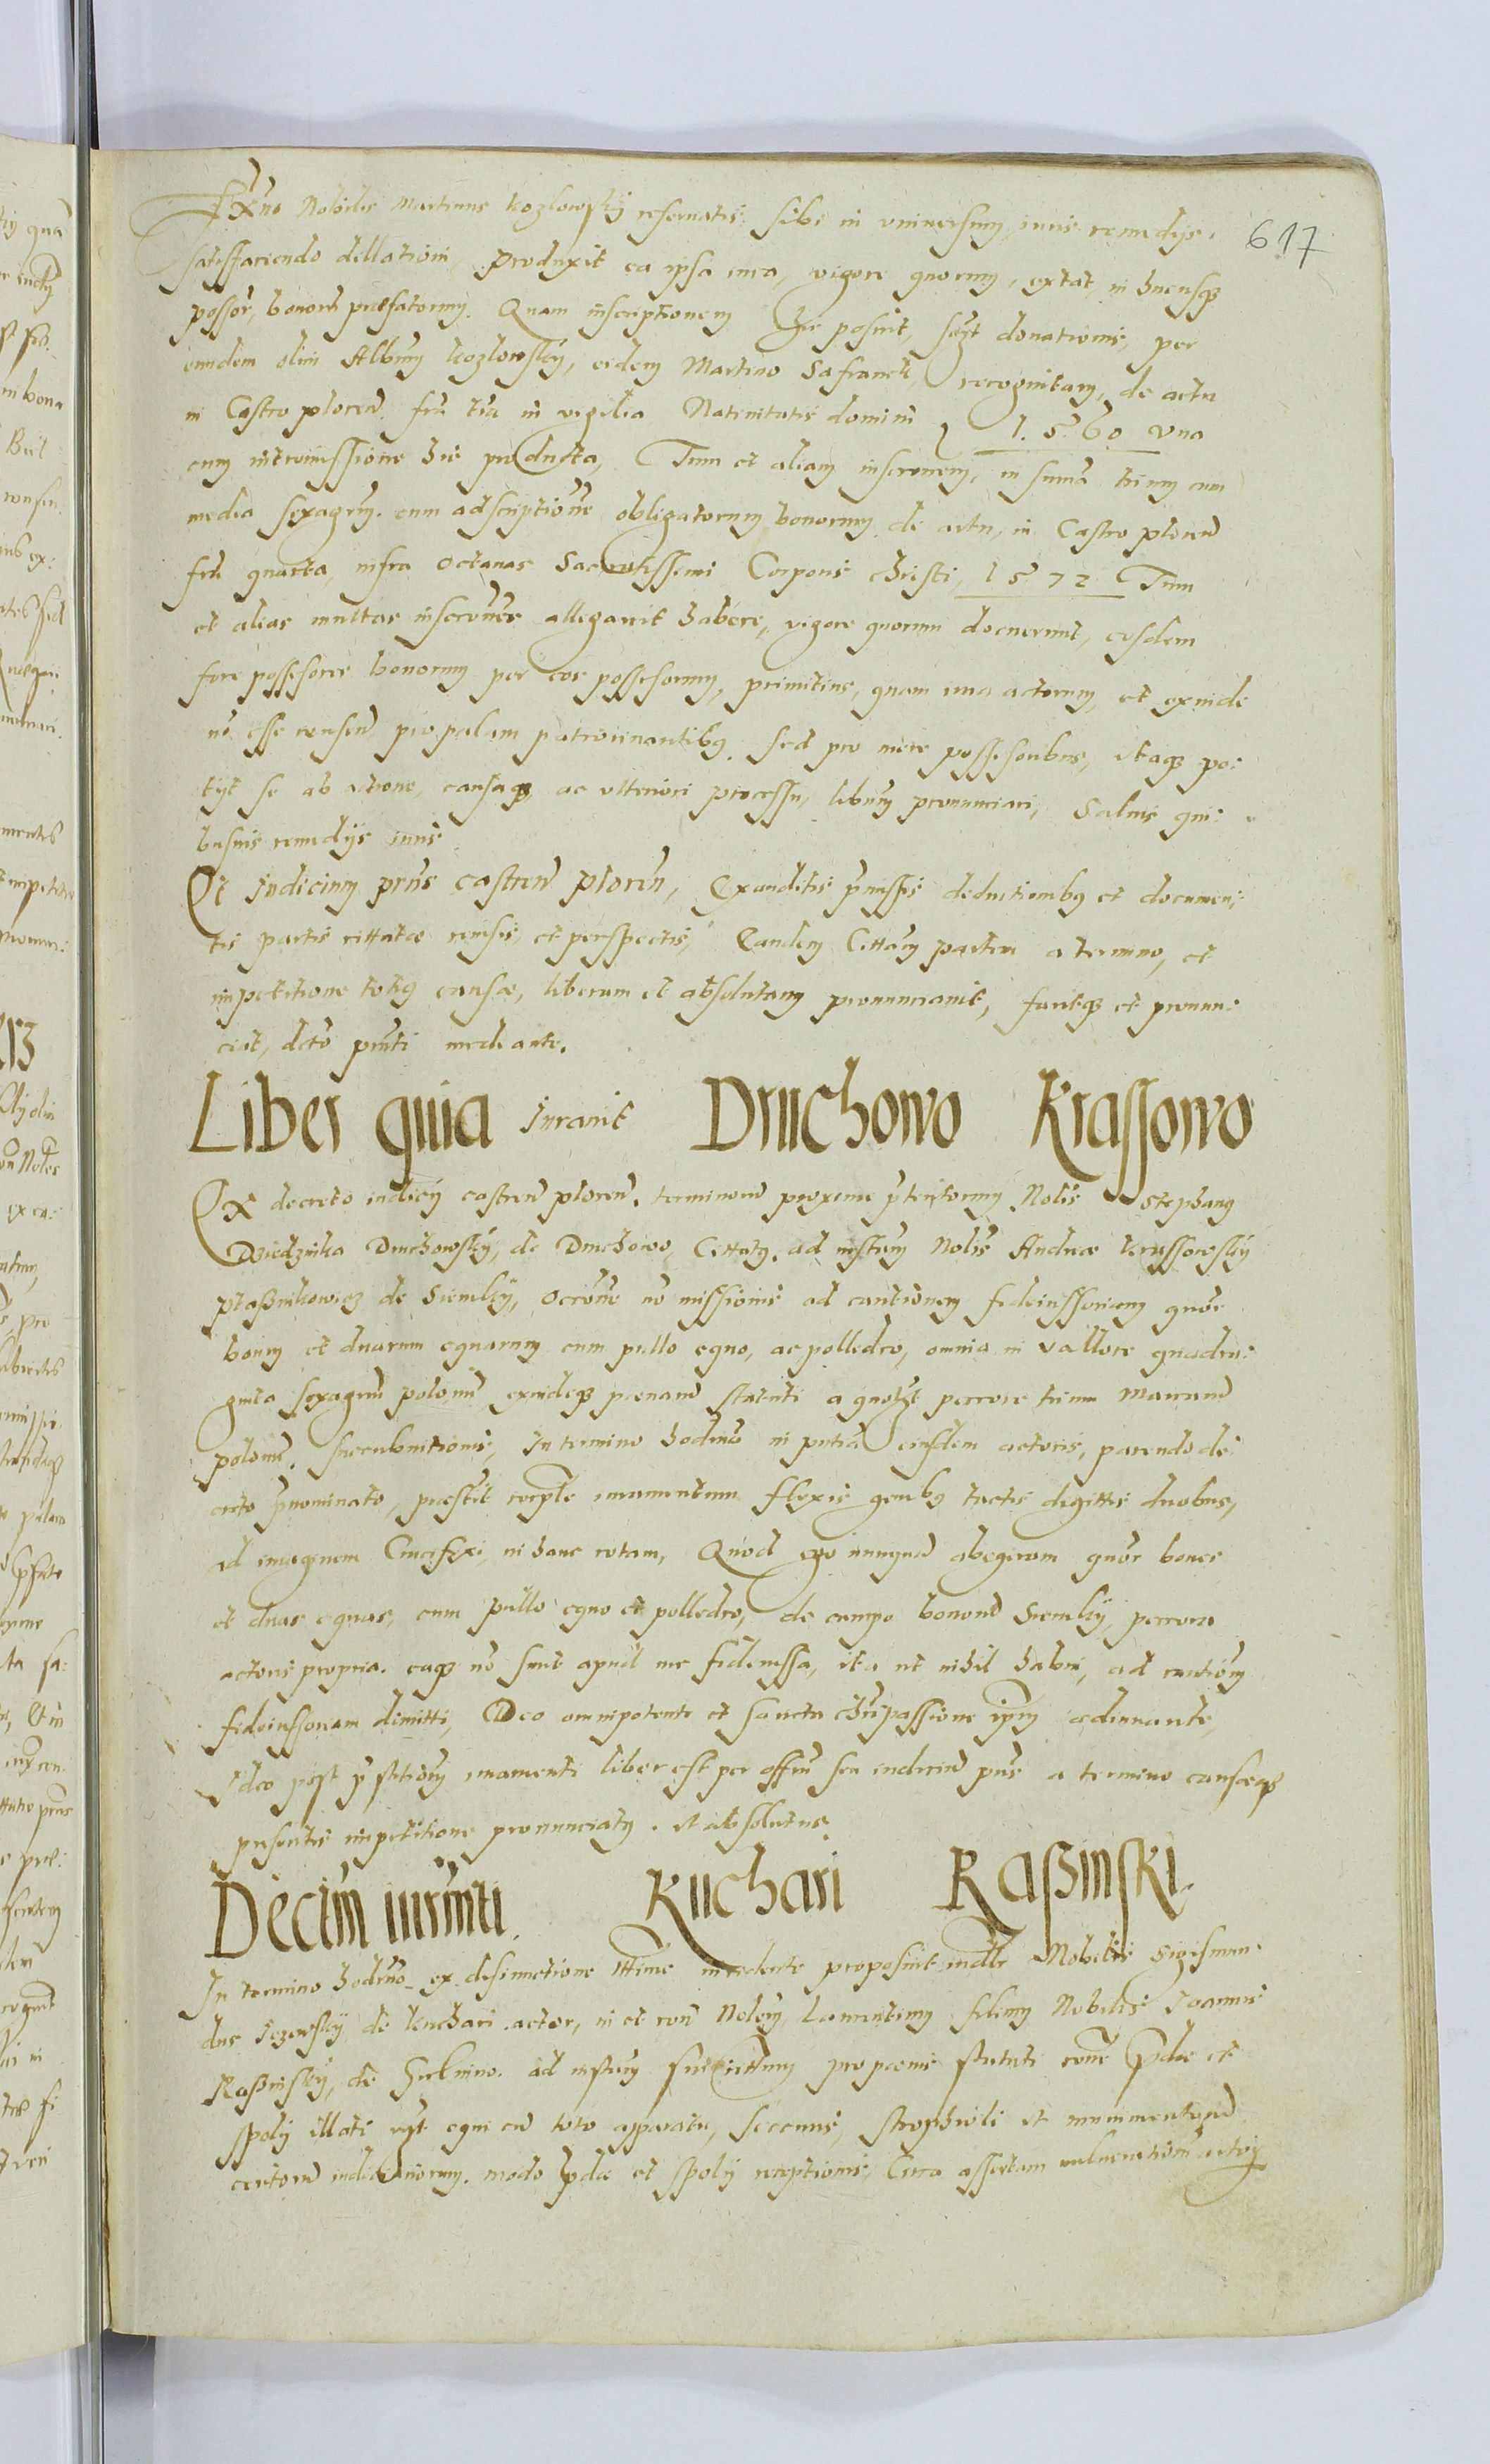 617
Nobilis Martinus Kozlowskÿ reseruatis sibi in vniuersum iuris remedijs
satisfaciendo dellationi, produxit ea ipsa iura, vigore quorum, extat in hucusqȝ
possor, bonorū præfatorum. Quam inscriptionem posuit, donationis, per
eundem olim Albertum Kozlowskÿ, eidem Martino Safranek, recognitam, de actu
in Castro plocen̄ fr̄a in vigilia Natiuitatis domini 1.5.60 Vna
cum intromissione hic producta, Tum et aliam inscr̄onem, in sum̄a trium cum
media sexagr̄m. cum adscriptione obligatorum bonorum de actu, in Castro plocen̄
fr̄a quarta, infra Octauas Sacratissimi Corporis christi, 1572 Tum
et alias multas inscr̄ones allegauit habere, vigore quorum docuerunt, eosdem
fore possessores bonorum per eos possessorum, primitius, quam iura actorum, et exinde
nō esse censen̄ pro palam patrocinantibȝ. sed pro mere possessoribus, itaqȝ pe:
tijt se ab actione, causaqȝ ac vlteriori processu, liberum pronunciari, Saluis qui:
busuis remedijs iuris.
Et Iudicium pr̄ns castren̄ plocen̄, Exauditis p̄missis deductionibȝ et documen:
tis partis cittatæ visis, et perspectis, Eandem Cittatam partem a termino, et
impetitione totiȝ causæ, liberam et absolutam pronunciauit, facitqȝ et pronun:
ciat, dcto pr̄nti mediante.
Liber quia Iurauit Druchowo Krassowo
Ex decreto iudicij castren̄ plocen̄. terminorū proxime p̄teritorum Nobilis Stephanȝ
Dziedzinka Druchowskÿ, de Druchowo, Cittatȝ. ad inst̄am Nobilis Andreæ Krassowskÿ
Ptaßnikowicz de Siemkÿ, occ̄one nō missionis ad cautionem fideiussoriam quor
boum et duarum equarum cum pullo equo, ac polledro, omnia in vallore quadra:
ginta sexagen̄ polon̄, exindeqȝ pœnarū statuti a quolibet pecore trium Marcarū
polon̄. succubuitionis, In termino hodierno in pn̄tia eiusdem actoris, parendo de:
creto p̄nominato, præstitit corp̄le iuramentum flexis genibȝ tactis digittis duobus,
ad imaginem Crucifixi in hanc rotam, Quod ego nunquā abegeram quor boues
et duas equas, cum pullo equo et polledro, de campo bonorū Siemkÿ, pecora
actoris propria. eaqȝ nō sunt apud me fideiussa, ita ut nihil habui, ad cautionem
fideiussoriam dimitti, Deo omnipotente et sancta chri passione ip̄m adiuuante,
Ideo post p̄stitionem iuramenti liber est per offm̄ seu iudicium pn̄s a termino causæqȝ
presentis impetitione pronunciatȝ. et absolutus.
Decm̄ iurm̄ti. Kuchari Raßinski.
In termino hodierno ex disiunctione incidente proposuit Nobilis Sigismun:
dus Jezewskÿ de Kuchari actor, in et con̄ Nobilem Laurentium filium Nobilis Joannis
Raßinskÿ, de ad inst̄am sui cittatum pro pœnis statuti præde et
spolij illati equi cū toto apparatu, Securis, strophioli et munimentorū
certorū modo p̄dæ et spolij receptionis, Circa assertam vulnerationem